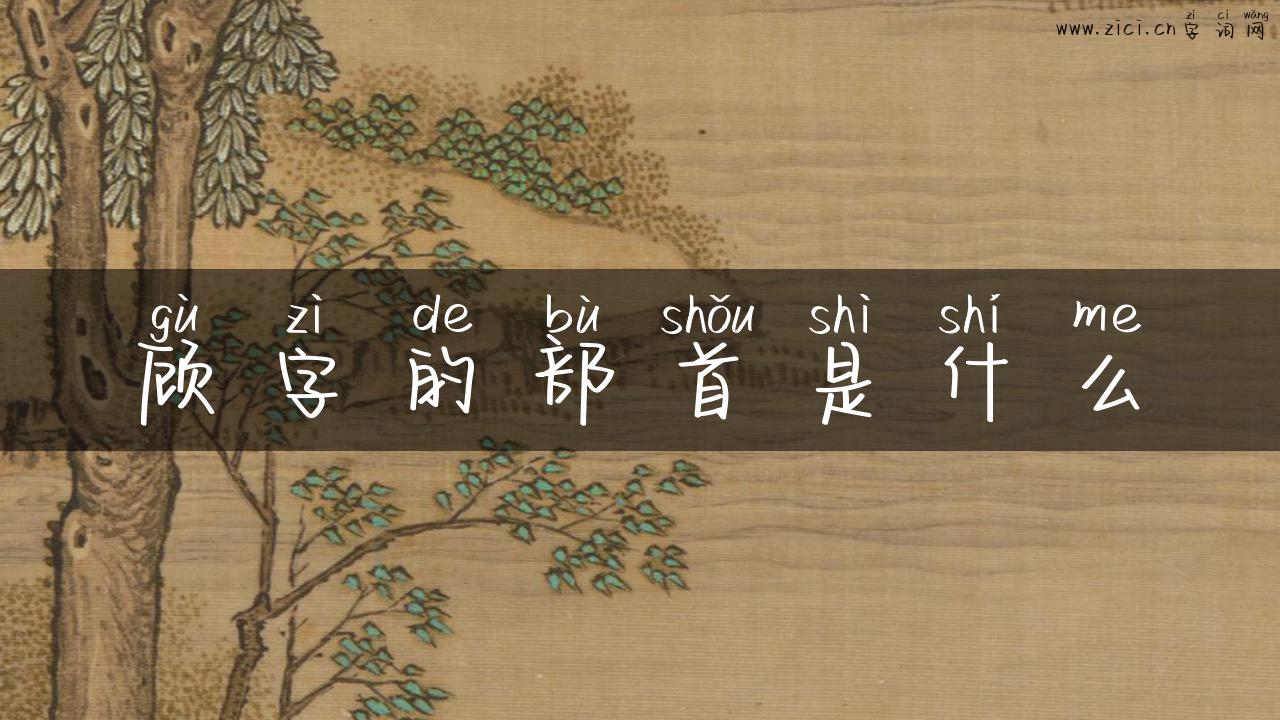 zì cí wǎng
www.zici.cn 字词网
gù zì de bù shǒu shì shí me
顾字的部首是什么